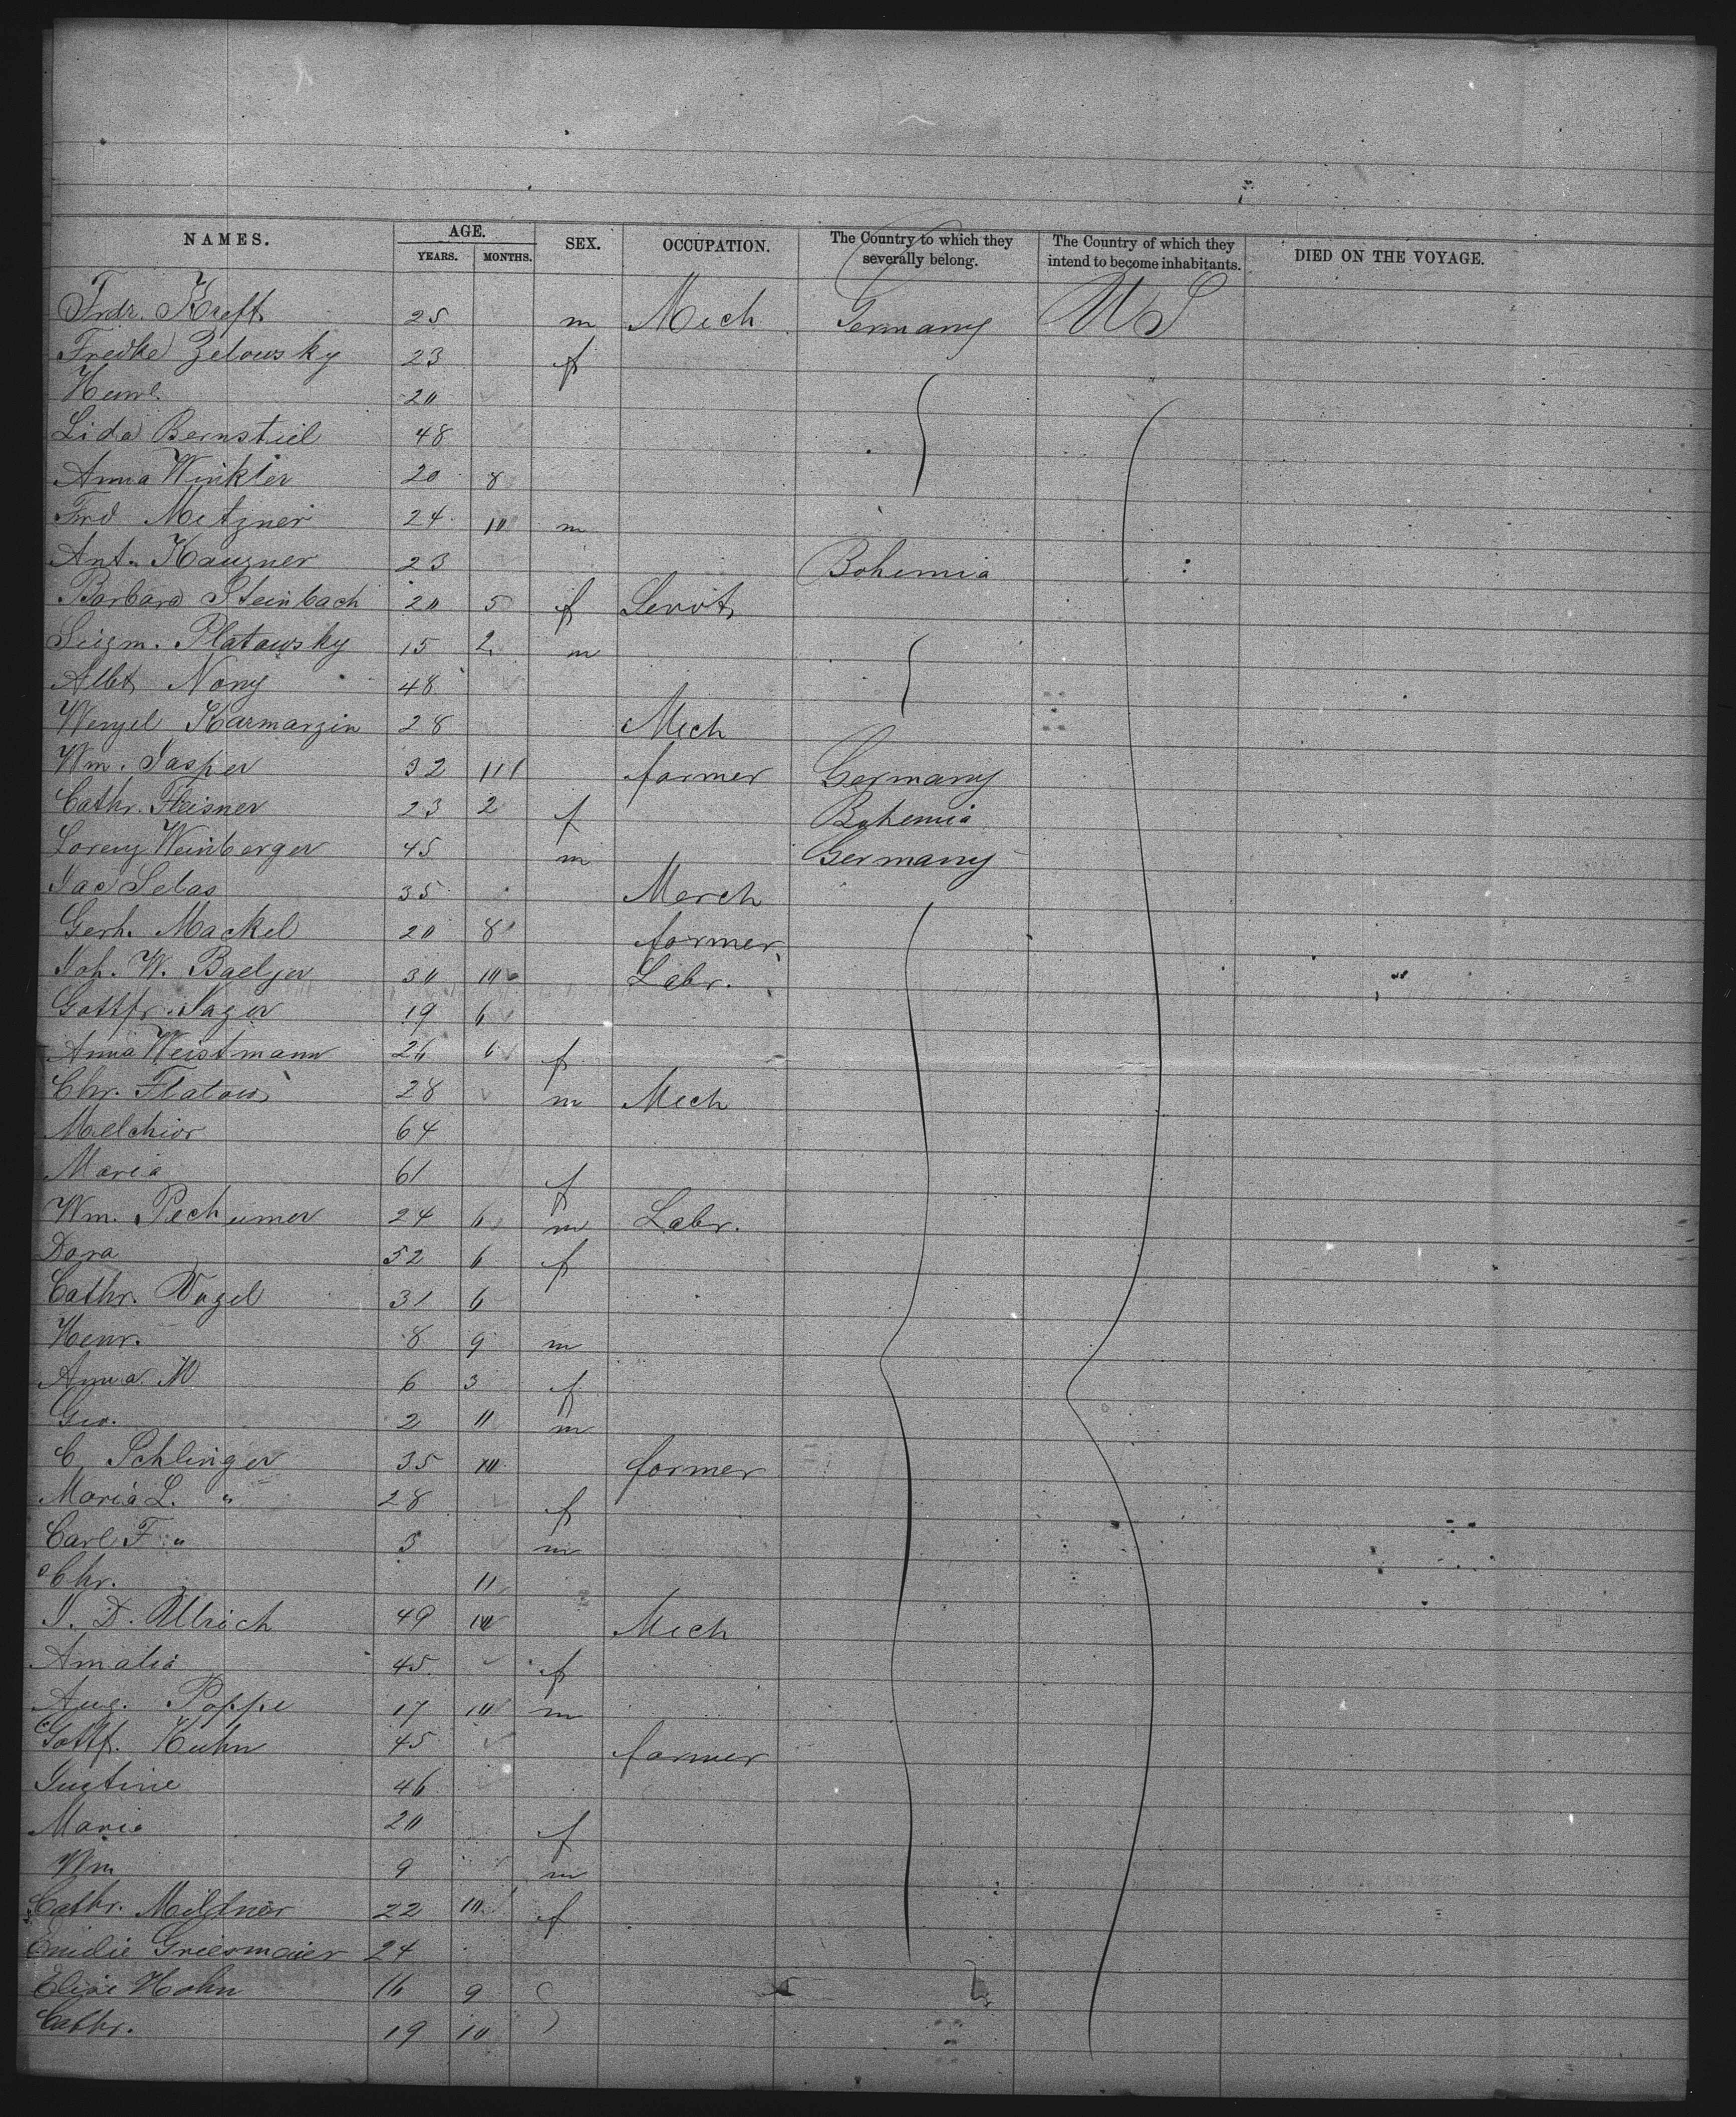 NAMES. AGE. YEARS. MONTHS. SEX. OCCUPATION. The Country to which they severally belong. The Country of which they intend to become inhabitants. DIED ON THE VOYAGE.
Frdr. Kreft 25 m Mech Germany US
Fredke Zelowsky 23 f
Henr. 20
Lida Bernstiel 48
Anna Winkler 20 8
Frd Metzner 24 10 m
Ant. Kauzner 23 Bohemia
Barbara Steinbach 20 5 f Servt
Siegm. Platowsky 15 2 m
Albt Nony 48
Wenzel Karmarzin 28 Mech
Wm. Jasper 32 10 farmer Germany
Cathr. Fleisner 23 2 f Bohemia
Lorenz Weinberger 45 m Germany
Jac Selas 35 Merch
Gerh. Mackel 20 8 farmer
Joh. W. Baeljer 30 10 Labr.
Gottfr. Jager 19 6
Anna Weistmann 26 6 f
Chr. Flatow 28 m Mech
Melchior 64
Maria 61 f
Wm. Pecheimer 24 6 m Labr.
Dora 52 6 f
Cathr. Vogel 31 6
Henr. 8 9 m
Anna M 6 3 f
Geo. 2 11 m
C. Schlinger 35 10 farmer
Maria L. " 28 f
Carl F. " 5 m
Chr. 11
J. D. Ullrich 49 10 Mech
Amalia 45 f
Aug. Poppe 17 10 m
Gottf. Kuhn 45 farmer
Justine 46
Maria 20 f
Wm 9 m
Cathr. Mildner 22 10 f
Emilie Griesmaier 24
Elise Hohn 16 9
Cathr. 19 10